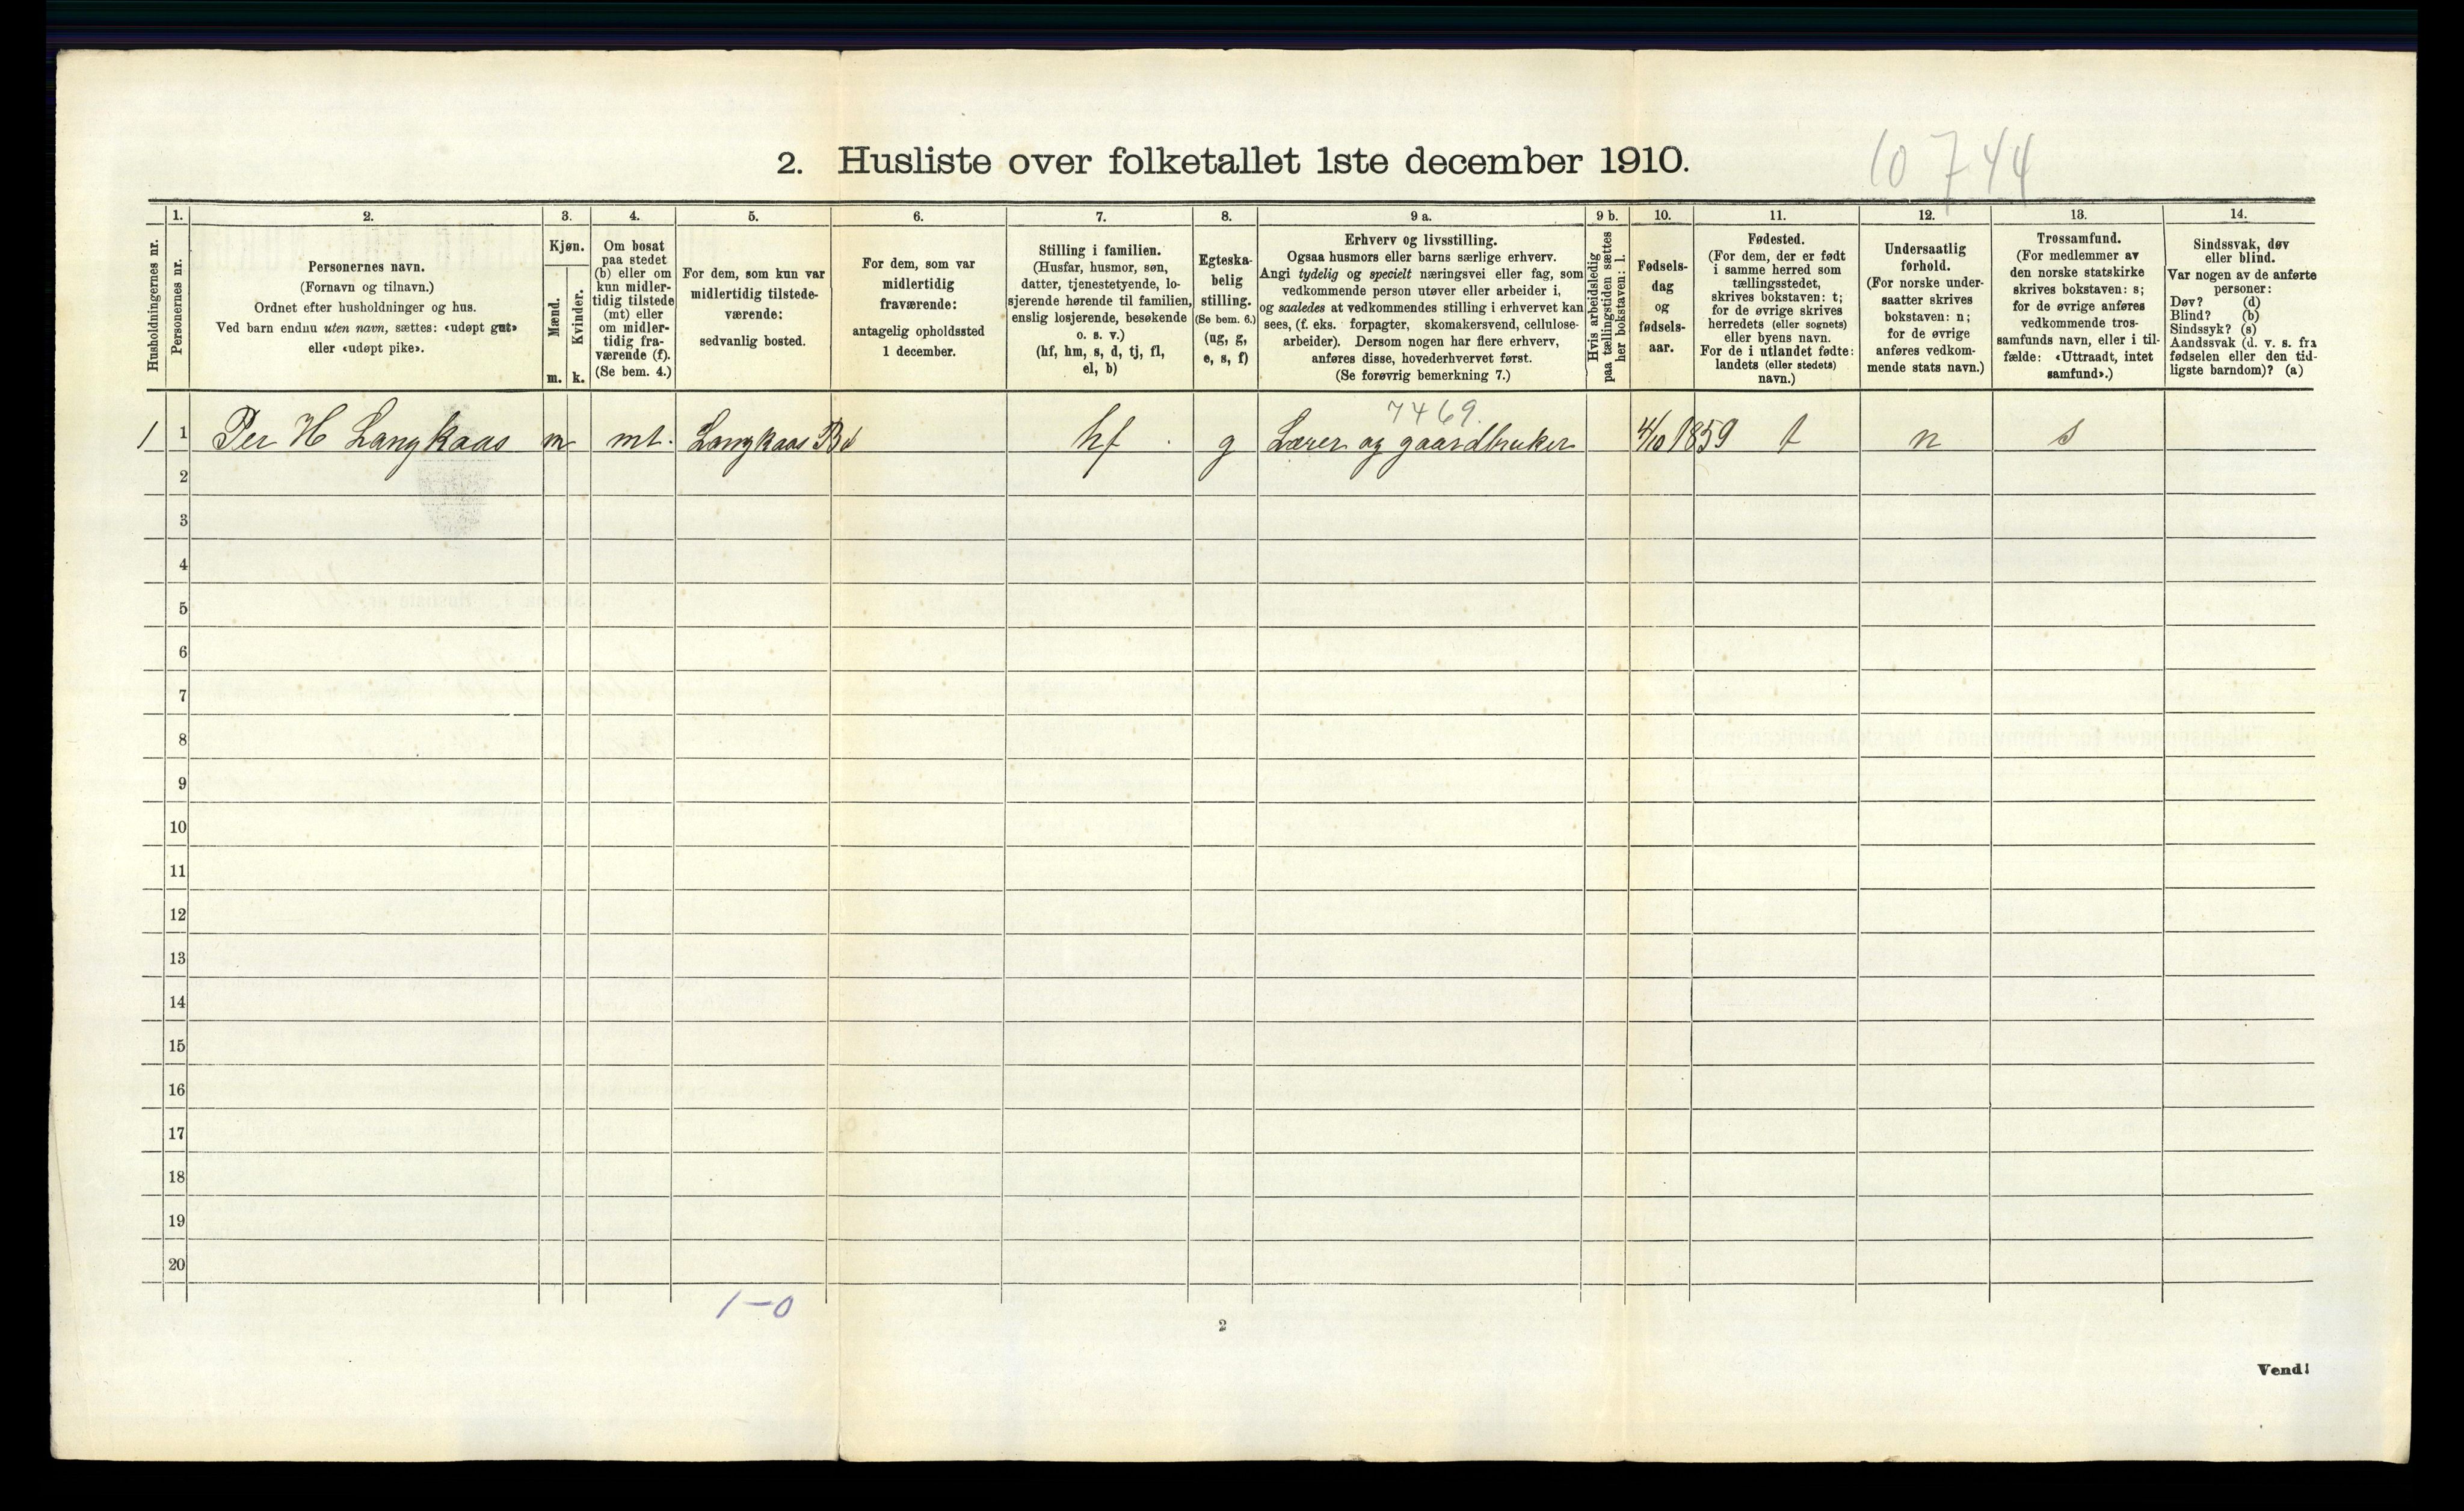 10 744
2. Husliste over folketallet 1ste december 1910.
Husholdningernes nr.
1.
Personernes nr.
2.
Personernes navn.
(Fornavn og tilnavn.)
Ordnet efter husholdninger og hus.
Ved barn endnu uten navn, sættes: «udøpt gut»
eller «udøpt pike».
3.
Kjøn.
Mænd.
Kvinder.
m. k.
4.
Om bosat
paa stedet
(b) eller om
kun midler-
tidig tilstede
(mt) eller
om midler-
tidig fra-
værende (f).
(Se bem. 4.)
5.
For dem, som kun var
midlertidig tilstede-
værende:
sedvanlig bosted.
6.
For dem, som var
midlertidig
fraværende:
antagelig opholdssted
1 december.
7.
Stilling i familien.
(Husfar, husmor, søn,
datter, tjenestetyende, lo-
sjerende hørende til familien,
enslig losjerende, besøkende
o. s. v.)
(hf, hm, s, d, tj, fl,
el, b)
8.
Egteska-
belig
stilling.
(Se bem. 6.)
(ug, g,
e, s, f)
9 a.
Erhverv og livsstilling.
Ogsaa husmors eller barns særlige erhverv.
Angi tydelig og specielt næringsvei eller fag, som
vedkommende person utøver eller arbeider i,
og saaledes at vedkommendes stilling i erhvervet kan
sees, (f. eks. forpagter, skomakersvend, cellulose-
arbeider). Dersom nogen har flere erhverv,
anføres disse, hovederhvervet først.
(Se forøvrig bemerkning 7.)
9 b.
Hvis arbeidsledig
paa tællingstiden sættes
her bokstaven: l.
10.
Fødsels-
dag
og
fødsels-
aar.
11.
Fødested.
(For dem, der er født
i samme herred som
tællingsstedet,
skrives bokstaven: t;
for de øvrige skrives
herredets (eller sognets)
eller byens navn.
For de i utlandet fødte:
landets (eller stedets)
navn.)
12.
Undersaatlig
forhold.
(For norske under-
saatter skrives
bokstaven: n;
for de øvrige
anføres vedkom-
mende stats navn.)
13.
Trossamfund.
(For medlemmer av
den norske statskirke
skrives bokstaven: s;
for de øvrige anføres
vedkommende tros-
samfunds navn, eller i til-
fælde: «Uttraadt, intet
samfund».)
14.
Sindssvak, døv
eller blind.
Var nogen av de anførte
personer:
Døv? (d)
Blind? (b)
Sindssyk? (s)
Aandssvak (d. v. s. fra
fødselen eller den tid-
ligste barndom)? (a)
7469.
1 1 Per H Langkaas m mt. Langkaas hf g Lærer og gaardbruker 4/10 1859 t n s
2
3
4
5
6
7
8
9
10
11
12
13
14
15
16
17
18
19
20
1-0
2
Vend!